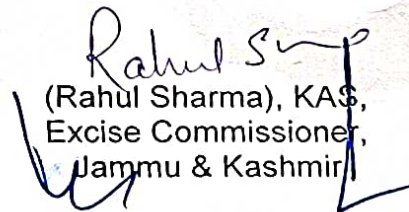 Rahul S
(Rahul Sharma), KAS,
Excise Commissioner,
Jammu & Kashmir